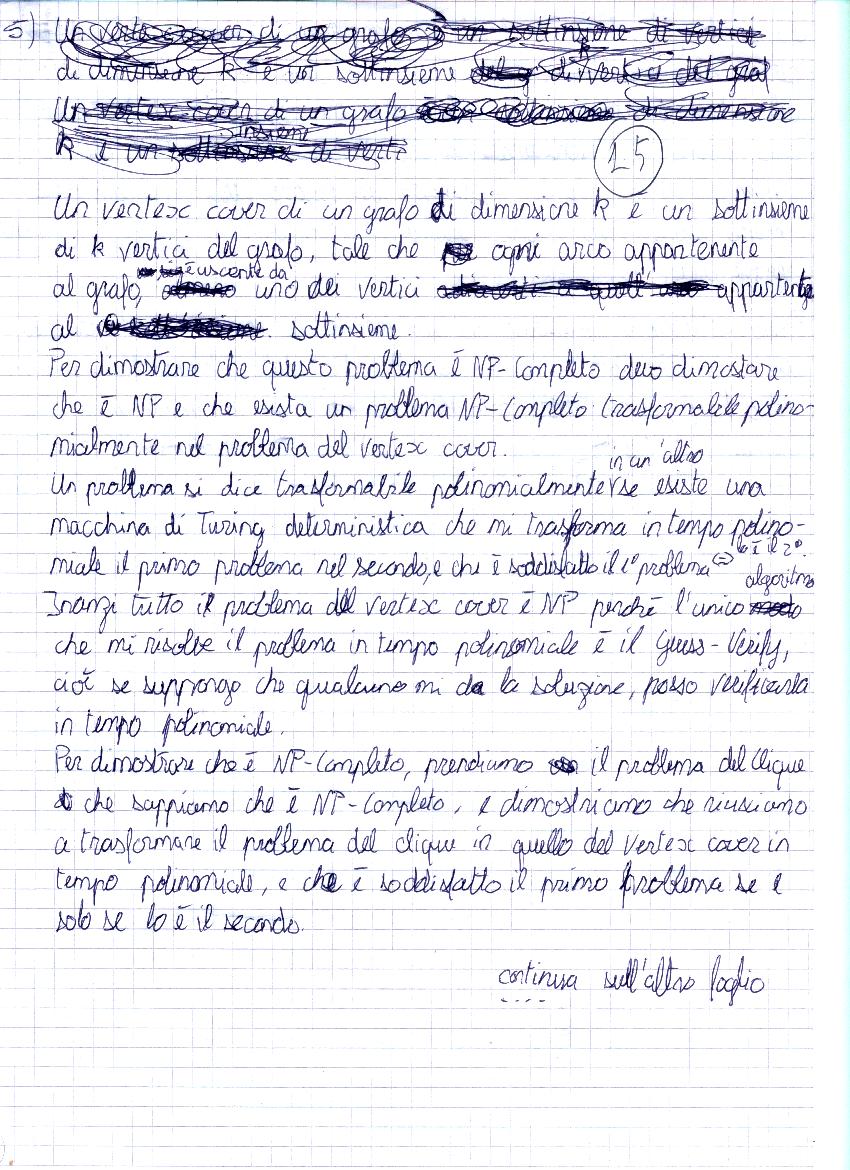 5) Un vertex cover di un grafo è un sottinsieme di vertici
di dimensione k è un sottinsieme di vertici del graf
Un vertex cover di un grafo di dimensione
k è un sottinsieme insieme di verti
15
Un vertex cover di un grafo di dimensione k è un sottinsieme
di k vertici del grafo, tale che ogni arco appartenente
è uscente da
al grafo, uno dei vertici appartente
al sottinsieme.
Per dimostrare che questo problema è NP-Completo devo dimostare
che è NP e che esista un problema NP-Completo trasformabile polino-
mialmente nel problema del vertex cover.
in un'altro
Un problema si dice trasformabile polinomialmente se esiste una
macchina di Turing deterministica che mi trasforma in tempo polino-
miale il primo problema nel secondo, e che è soddisfatto il 1° problema <=> lo è il 2°.
algoritmo
Inanzi tutto il problema del vertex cover è NP perchè l'unico
che mi risolve il problema in tempo polinomiale è il Guess-Verify,
cioè se suppongo che qualcuno mi da la soluzione, posso verificarla
in tempo polinomiale.
Per dimostrare che è NP-Completo, prendiamo il problema del Clique
che sappiamo che è NP-Completo, e dimostriamo che riusciamo
a trasformare il problema del clique in quello del vertex cover in
tempo polinomiale, e che è soddisfatto il primo problema se e
solo se lo è il secondo.
continua sull'altro foglio